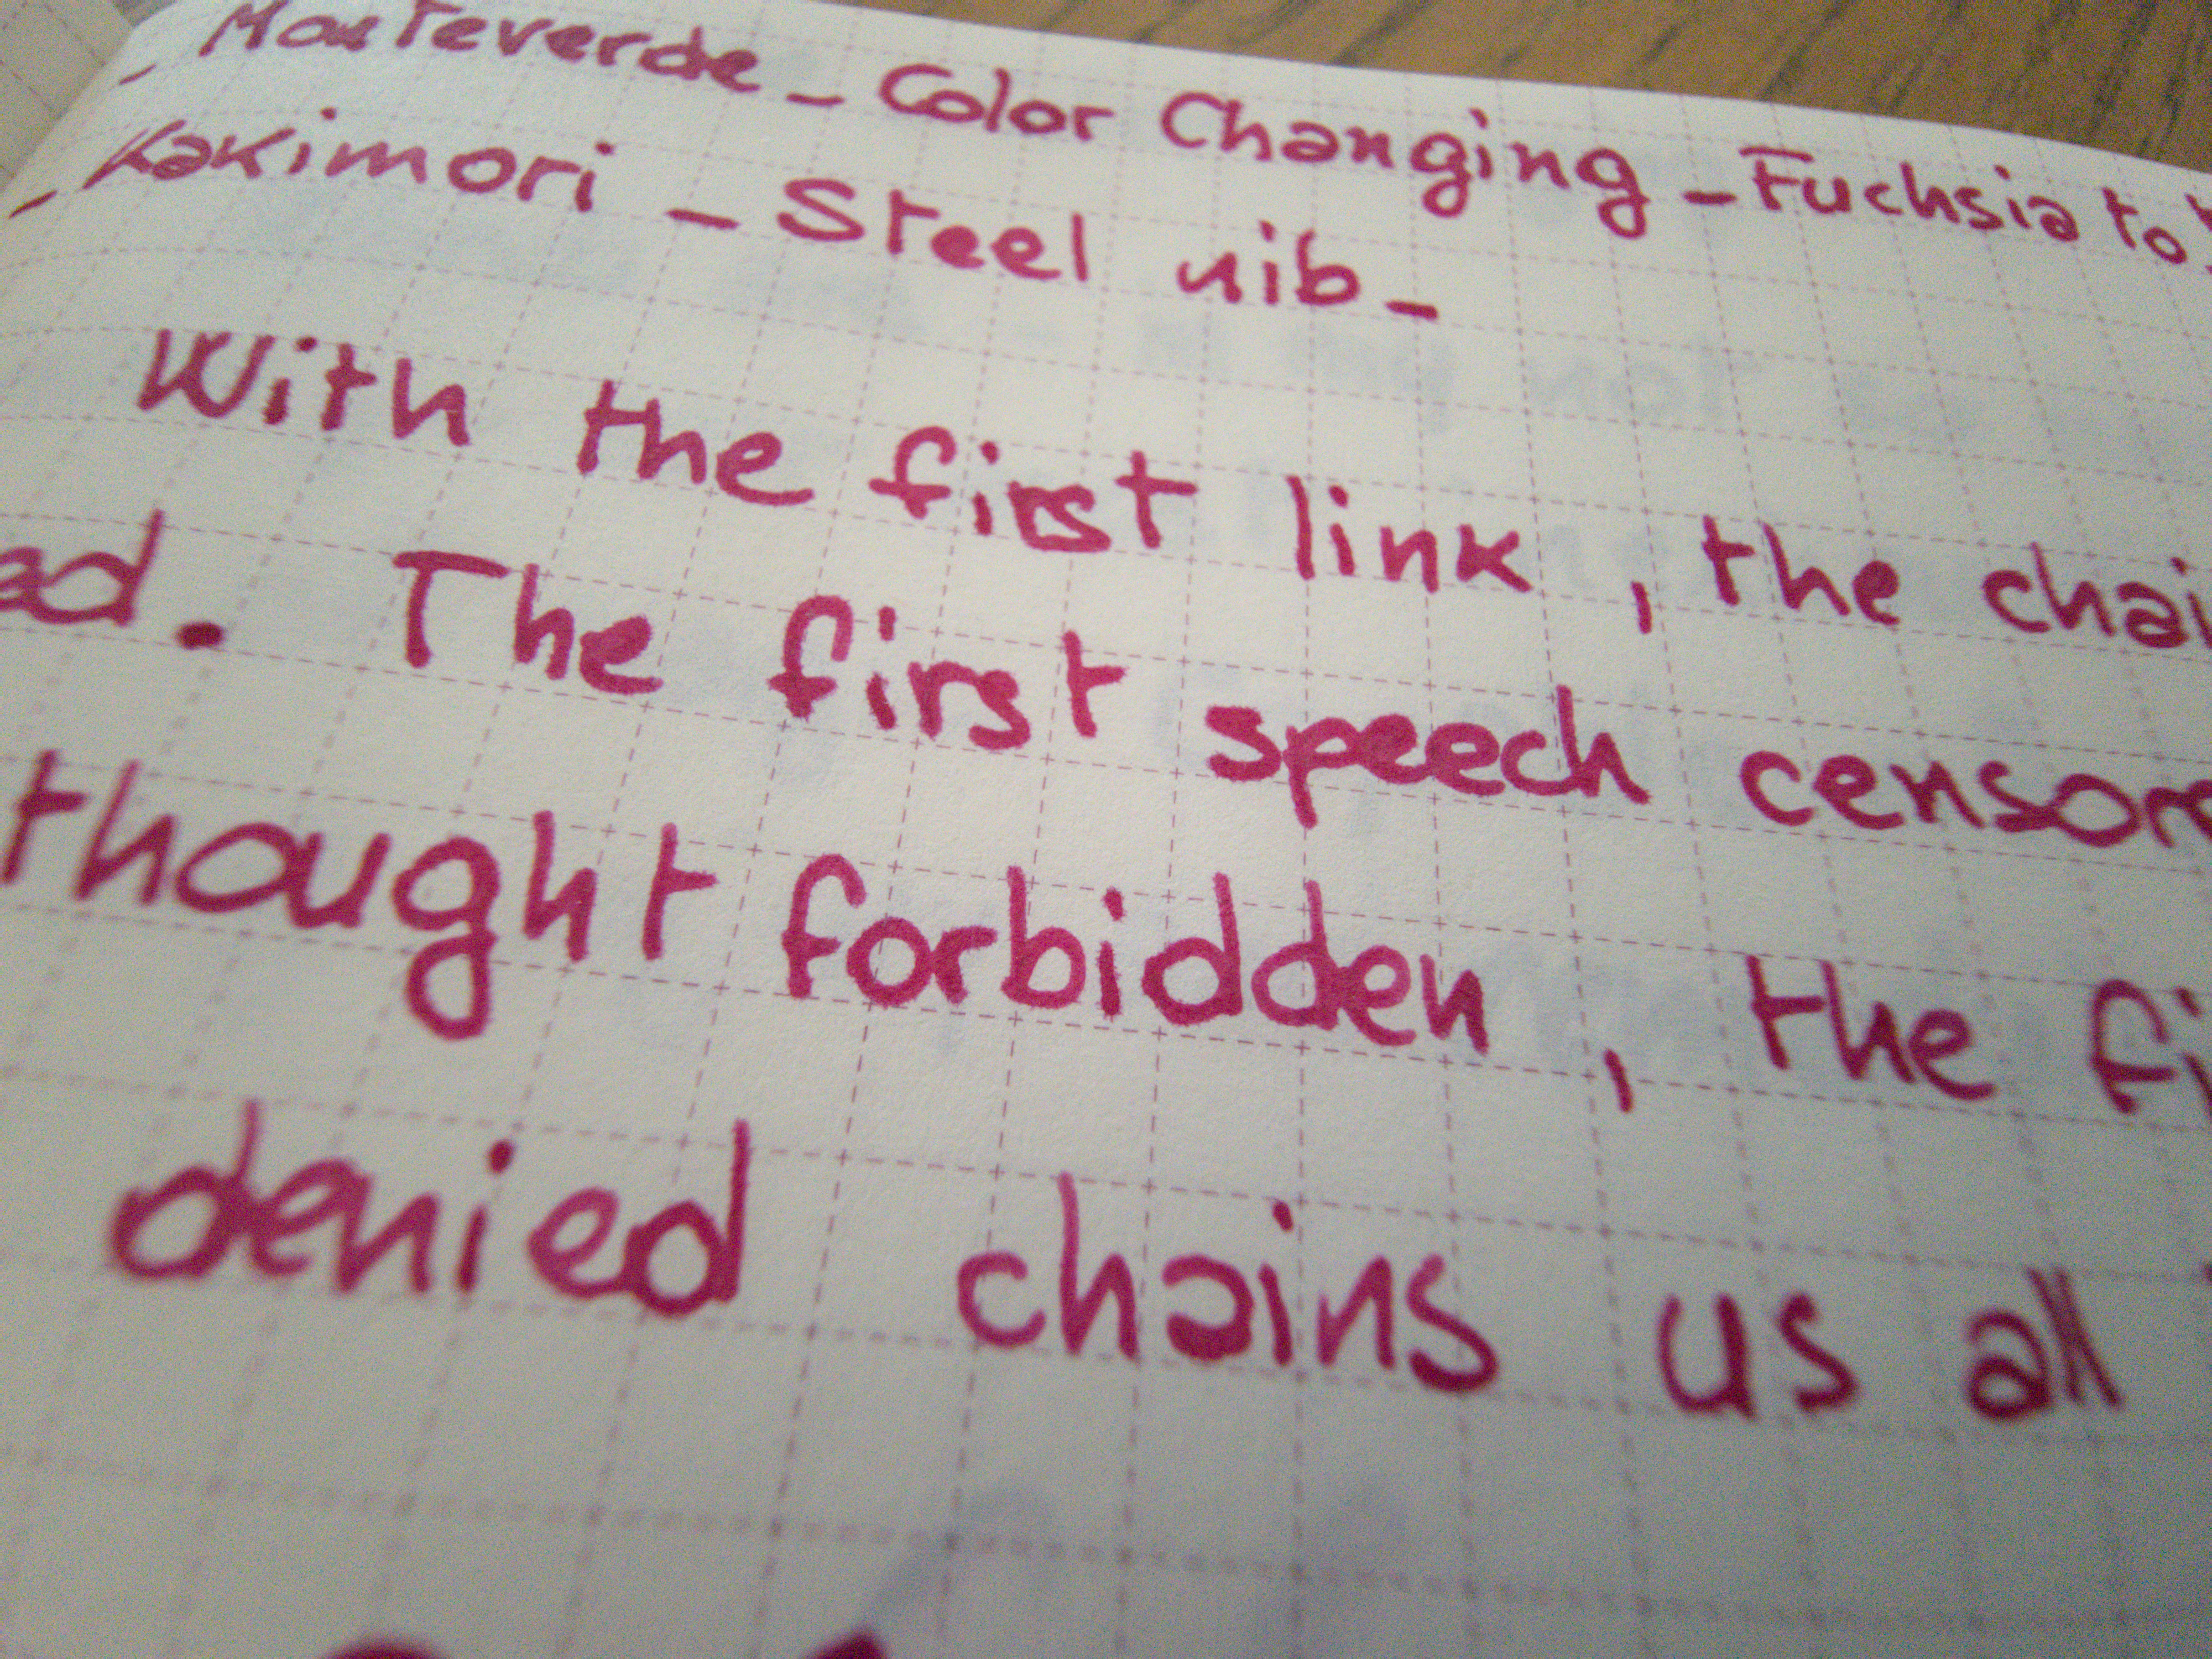 - Monteverde - Color Changing - Fuchsia to
- Kakimori - Steel nib -
With the first link, the chai
ad. The first speech censor
thought forbidden, the fi
denied chains us all